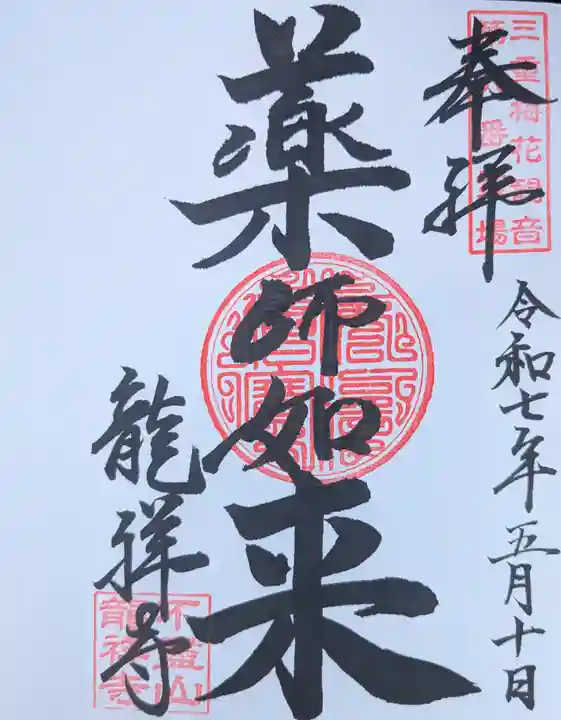 奉拝
三重梅花観音
令和七年五月十日
薬師如来
龍祥寺
不盡山
龍祥寺